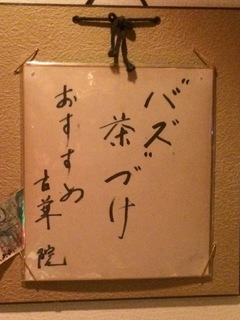 バズ
茶づけ
おすすめ
古草院